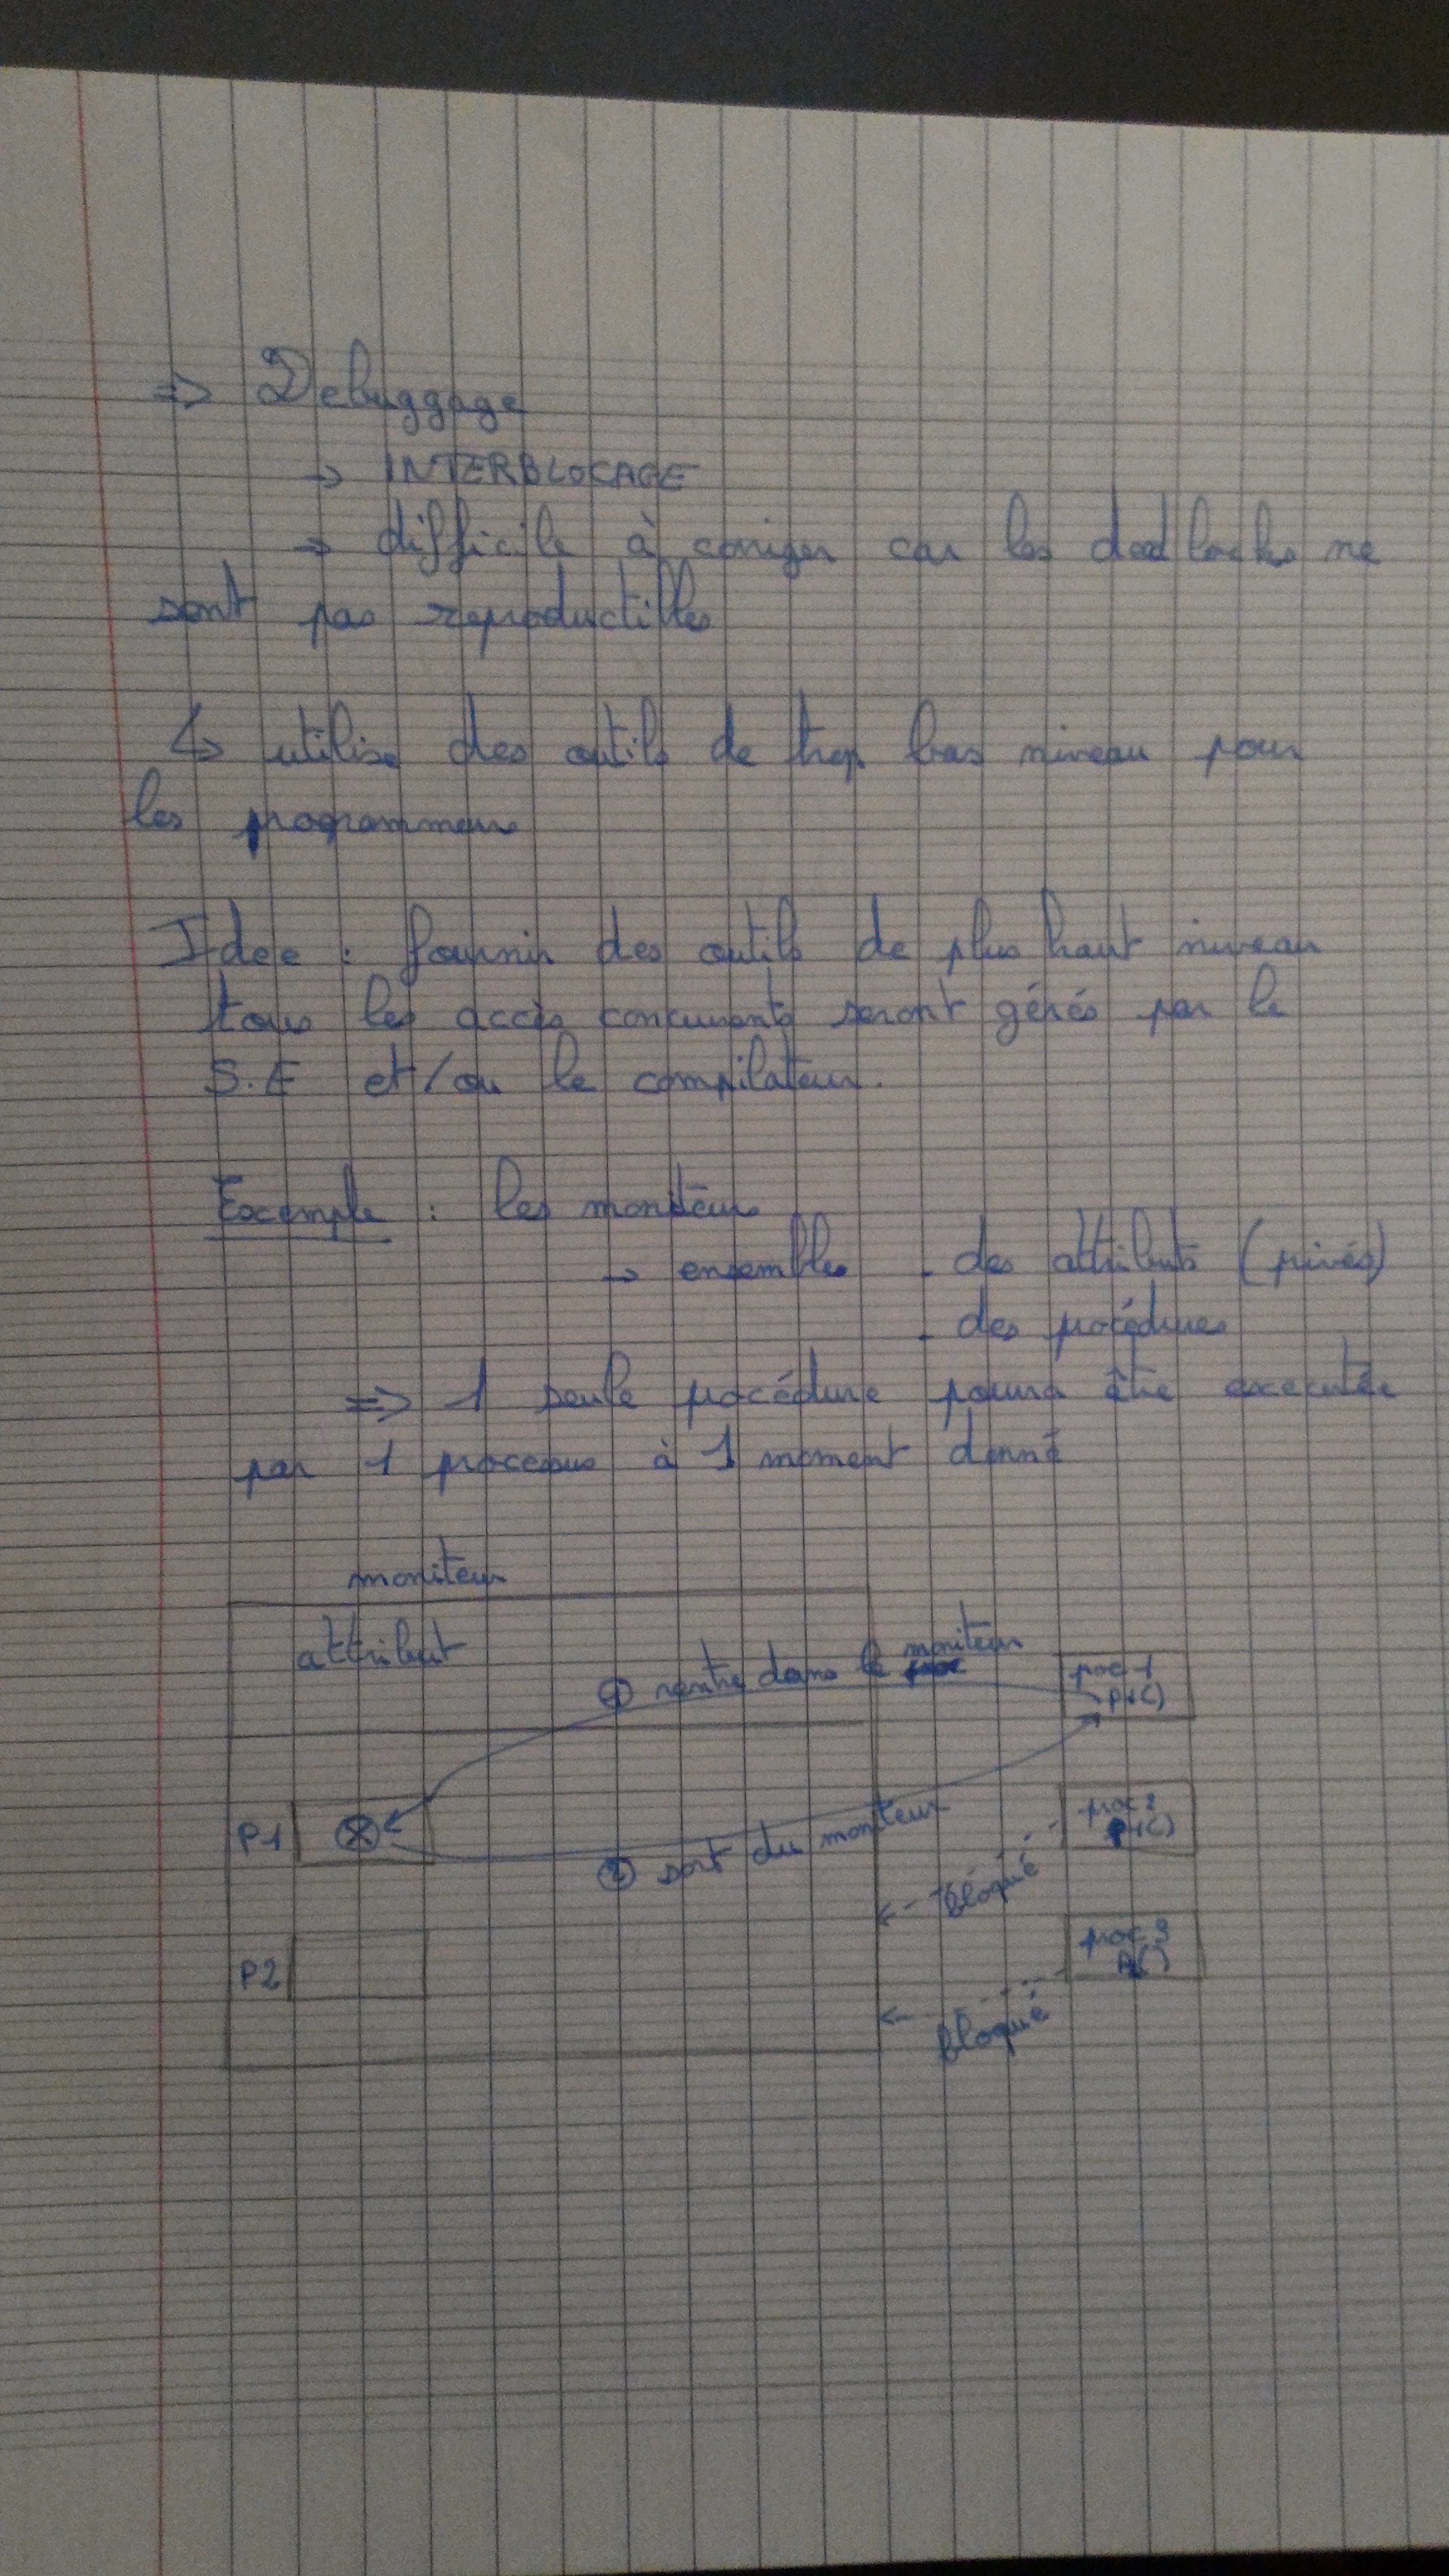 => Debuggage
→ INTERBLOCAGE
→ difficile à corriger car les deadlocks ne
sont pas reproductibles
↳ utilise des outils de trop bas niveau pour
les programmeurs
Idee : fournir des outils de plus haut niveau
tous les accès concurrents seront gérés par le
S.E et/ou le compilateur.
Exemple : les moniteurs
→ ensembles - des attributs (privés)
- des procédures
=> 1 seule procédure pourra être executée
par 1 processus à 1 moment donné
moniteur
attribut
① rentre dans le moniteur
proc 1
P1()
P1
② sort du moniteur
proc 2
P1()
bloqué
P2
proc 3
bloqué